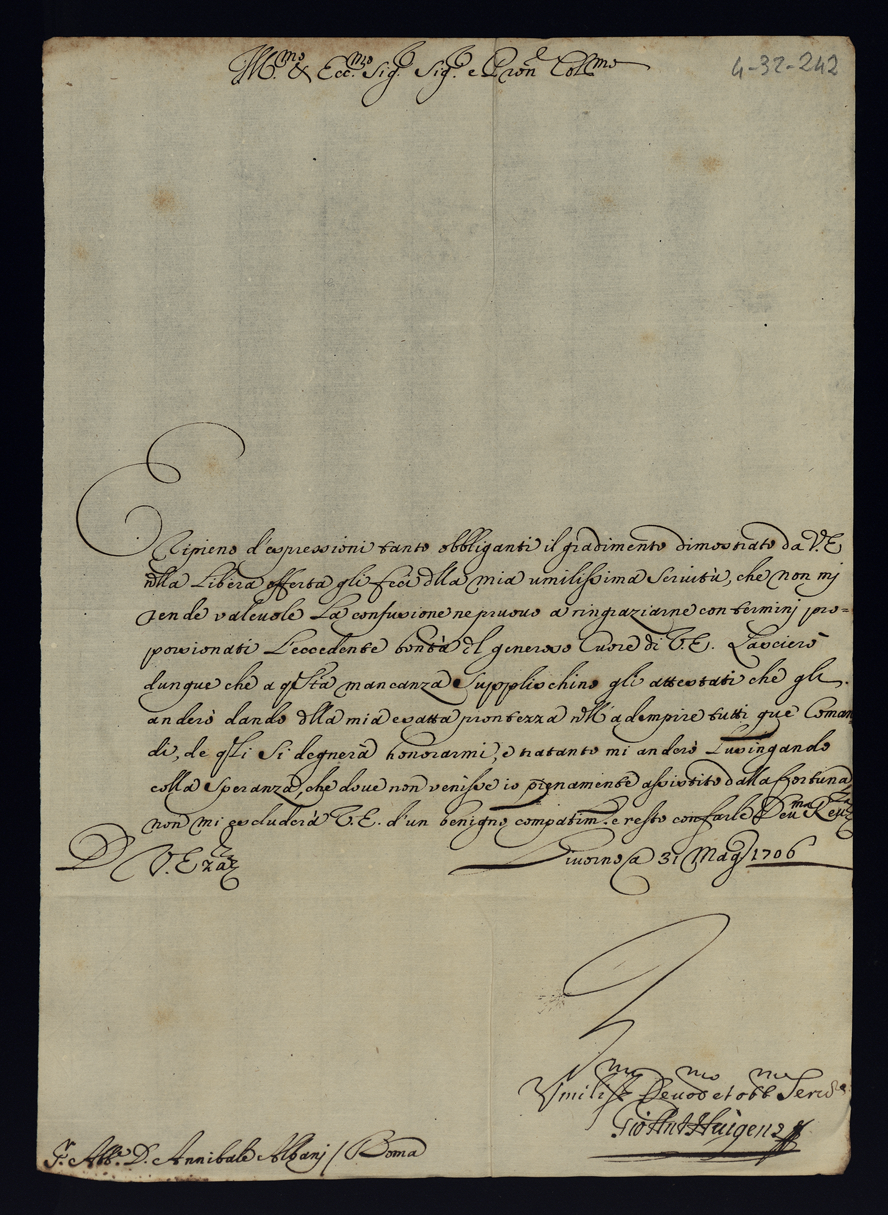 Ill.mo & Ecc.mo Sig.r Sig.r e Pron.e Coll.mo
4-32-242
E ripieno d'espressioni tanto obbliganti il gradimento dimostrato da V.E
nlla Libera offerta gli feci dlla mia umilissima Servitù, che non mj
rende valeuole La confusione ne pruouo a ringraziarne con terminj pro=
porzionati L'eccedente bontà del generoso Cuore di V.E. Lascierò
dunque che a qsta mancanza Supplischino gli attestati che gli
anderò dando dlla mia esatta prontezza nll'adempire tutti que Coman
di, de qli Si degnerà honorarmi, e tratanto mi anderò Lusingando
colla Speranza, che doue non venisse io pienamente assistito dalla fortuna
non mi escluderà V.E. d'un benigno compatim.e resto con farle Deu.ma Reu.za
D V.E
Liuorno a 31 Mag 1706
Vmiliss.mo Deuo.mo et obb.mo Seru.re
Gio Ant Huigens
Sr. Abb.e D. Annibale Albanj / Roma